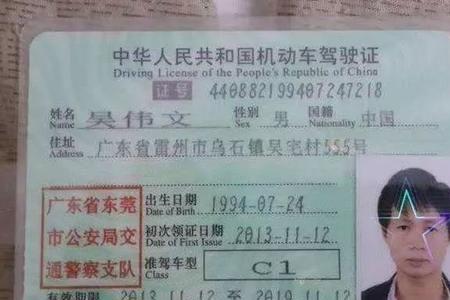 中华人民共和国机动车驾驶证
Driving License of the People's Republic of China
证号 440882199407247218
姓名 吴伟文 性别 男 国籍 中国
Name Sex Nationality
住址 广东省雷州市乌石镇吴宅村555号
Address
广东省东莞
市公安局交
通警察支队
出生日期 1994-07-24
Date of Birth
初次领证日期 2013-11-12
Date of First Issue
准驾车型 C1
Class
有效期限 2013-11-12 至 2019-11-12